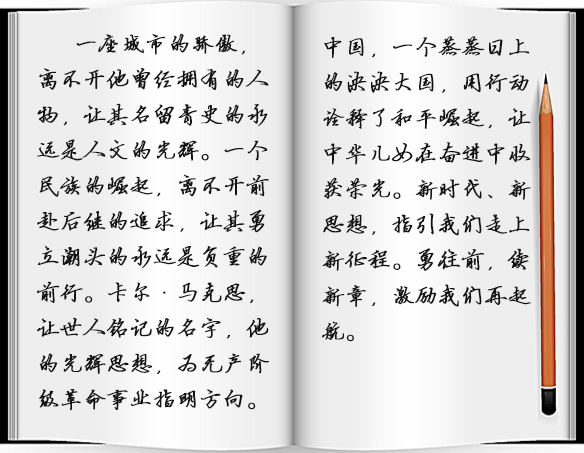 一座城市的骄傲，
离不开他曾经拥有的人
物，让其名留青史的永
远是人文的光辉。一个
民族的崛起，离不开前
赴后继的追求，让其勇
立潮头的永远是负重的
前行。卡尔·马克思，
让世人铭记的名字，他
的光辉思想，为无产阶
级革命事业指明方向。
中国，一个蒸蒸日上
的泱泱大国，用行动
诠释了和平崛起，让
中华儿女在奋进中收
获荣光。新时代、新
思想，指引我们走上
新征程。勇往前，续
新章，激励我们再起
航。